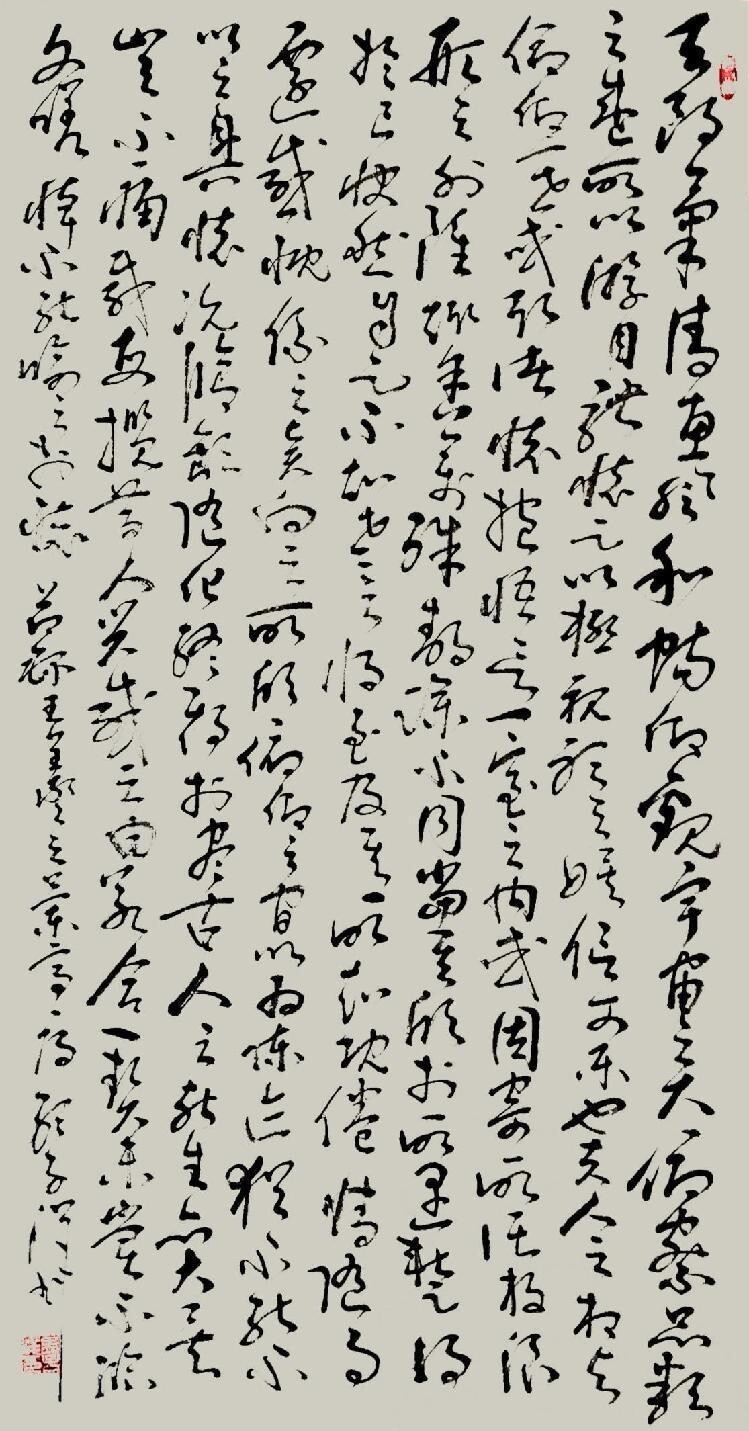 天朗氣清惠風和暢仰觀宇宙之大俯察品類
之盛所以游目騁懷足以極視聽之娛信可樂也夫人之相與
俯仰一世或取諸懷抱悟言一室之內或因寄所託放浪
形之外雖趣舍萬殊靜躁不同當其欣於所遇暫得
於己快然自足不知老之將至及其所之既倦情隨事
遷感慨係之矣向之所欣俯仰之間以為陳迹猶不能不
以之興懷況脩短隨化終期於盡古人云死生亦大矣
豈不痛哉每攬昔人興感之由若合一契未嘗不臨
文嗟悼不能喻之於懷 節錄王羲之蘭亭序 書